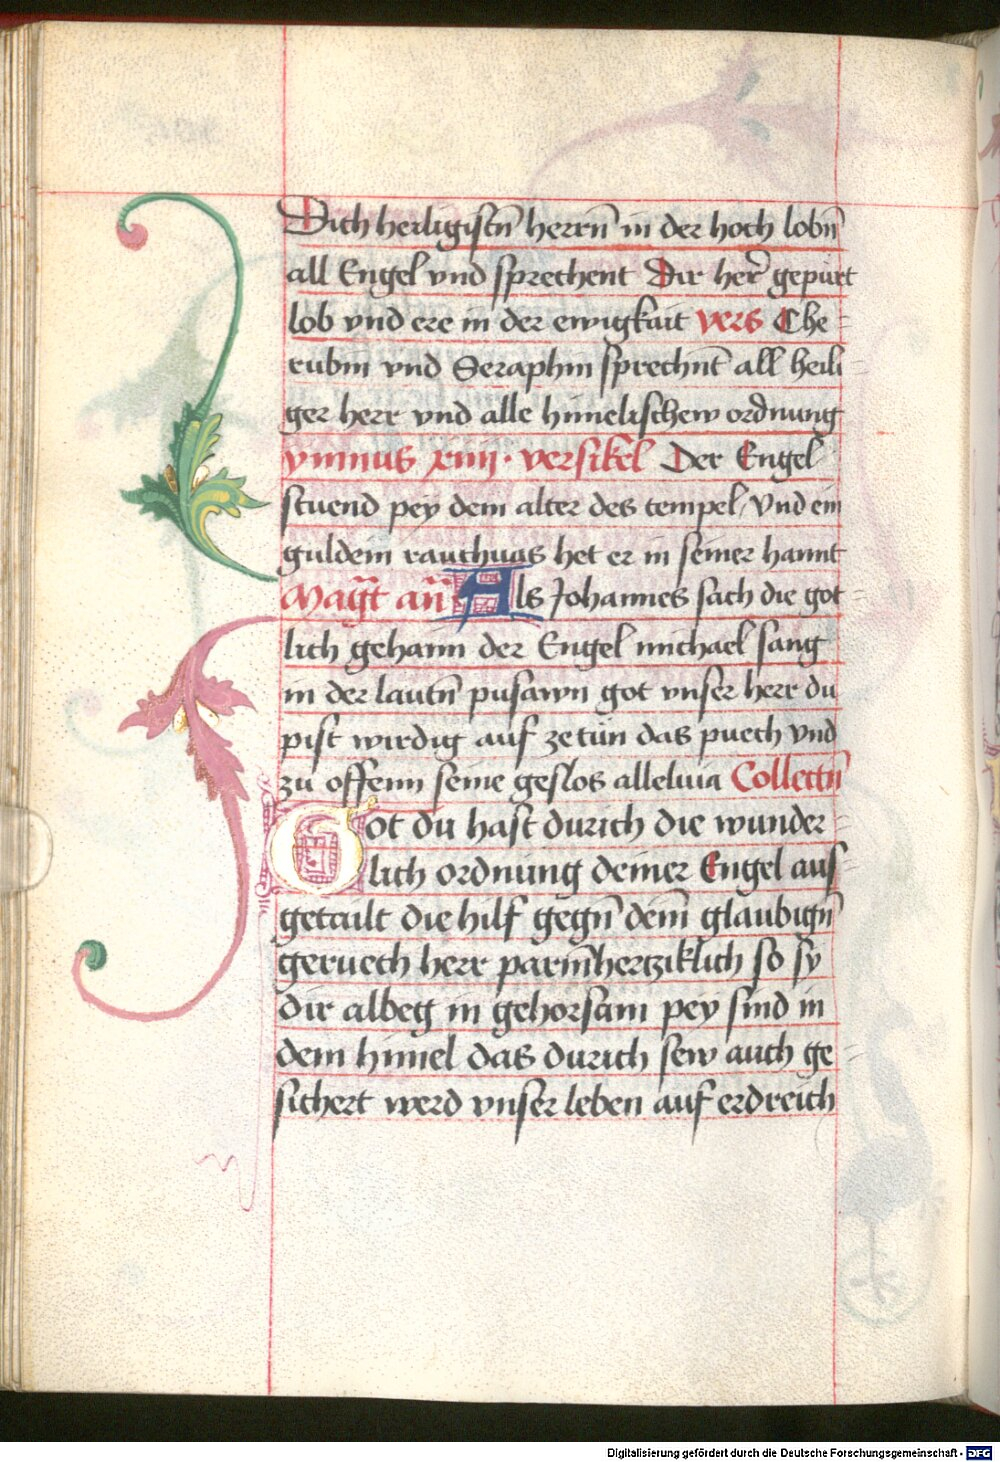 Dich heiligistn̄ herrn̄ in der hoch lobn̄
all Engel vnd sprechent Dir her̄ gepürt
lob vnd ere in der ewigkait vers Che=
rubin vnd Seraphin sprechnt̄ all heili=
ger herr vnd alle himelischew ordnung
ymnus xiiij. versikel Der Engel
stuend pey dem alter des tempel, Vnd ein
guldein rauchuas het er in seiner hannt
Mag̅t an̄ Als Johannes sach die got=
lich gehaim der Engel michael sang
in der lautn̄ pusawn got vnser herr du
pist wirdig auf zetün das puech vnd
zu offenn seine geslos alleluia Collectn̄
Got du hast durich die wunder=
lich ordnung deiner Engel aus=
getailt die hilf gegn̄ dein̄ glaubign̄
geruech herr parm̄hertziklich so sy
dir albeg in gehorsam pey sind in
dem himel das durich sew auch ge=
sichert werd vnser leben auf erdreich
Digitalisierung gefördert durch die Deutsche Forschungsgemeinschaft - DFG